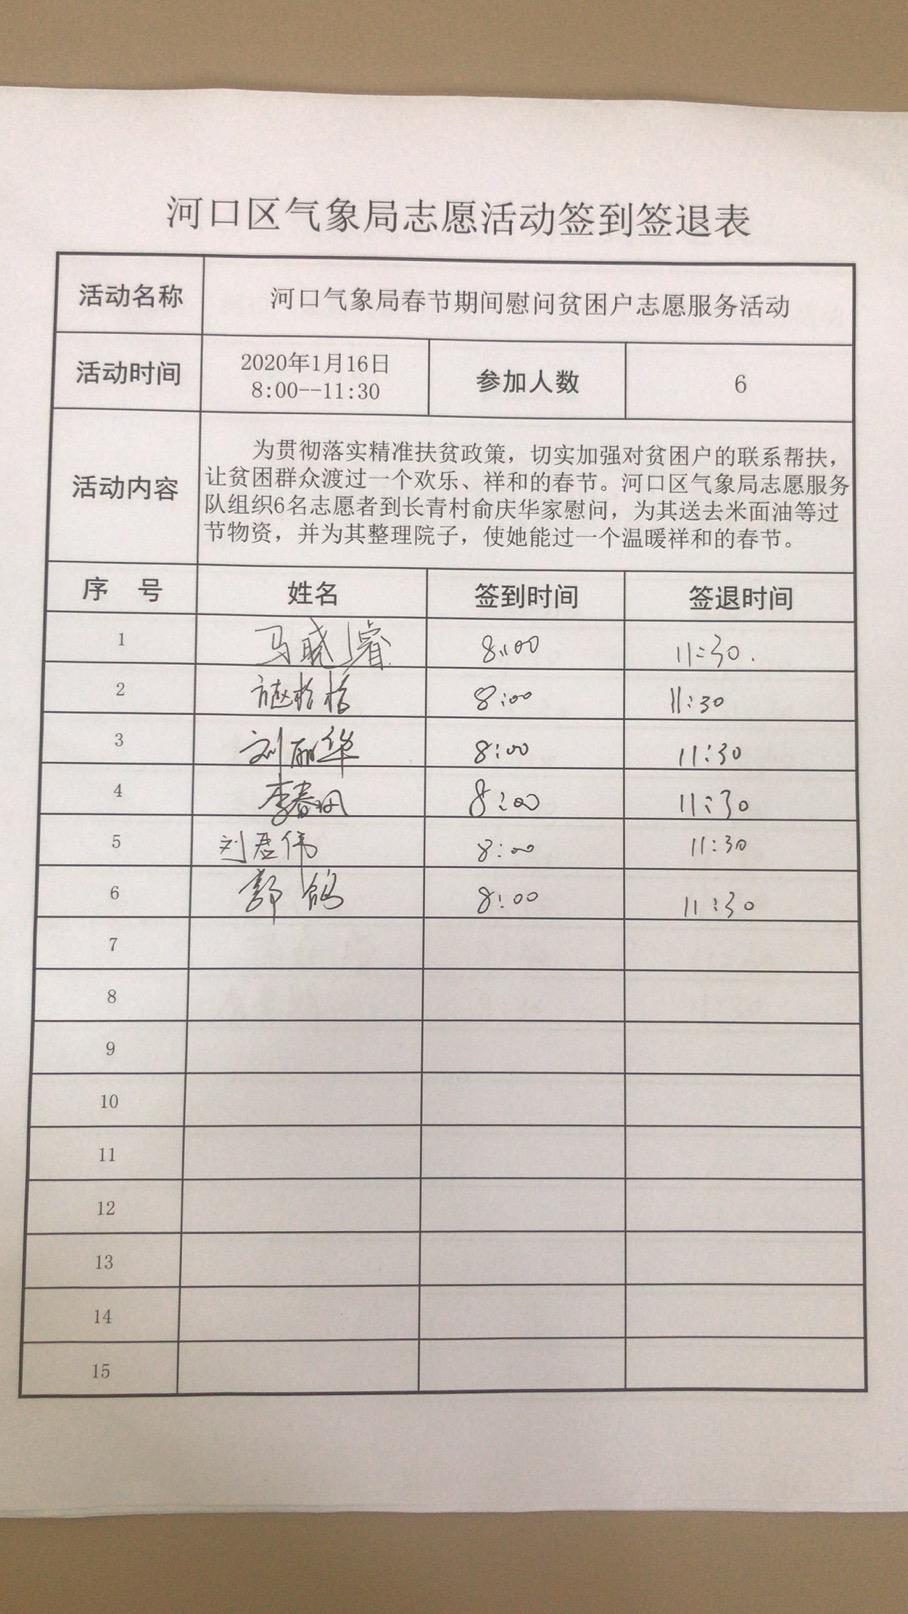 河口区气象局志愿活动签到签退表
活动名称 河口气象局春节期间慰问贫困户志愿服务活动
活动时间 2020年1月16日 8:00--11:30 参加人数 6
活动内容
为贯彻落实精准扶贫政策，切实加强对贫困户的联系帮扶，
让贫困群众渡过一个欢乐、祥和的春节。河口区气象局志愿服务
队组织6名志愿者到长青村俞庆华家慰问，为其送去米面油等过
节物资，并为其整理院子，使她能过一个温暖祥和的春节。
序 号 姓名 签到时间 签退时间
1 马晓睿 8:00 11:30.
2 8:00 11:30
3 刘丽华 8:00 11:30
4 李春凤 8:00 11:30
5 刘君伟 8:00 11:30
6 郭鸽 8:00 11:30
7
8
9
10
11
12
13
14
15